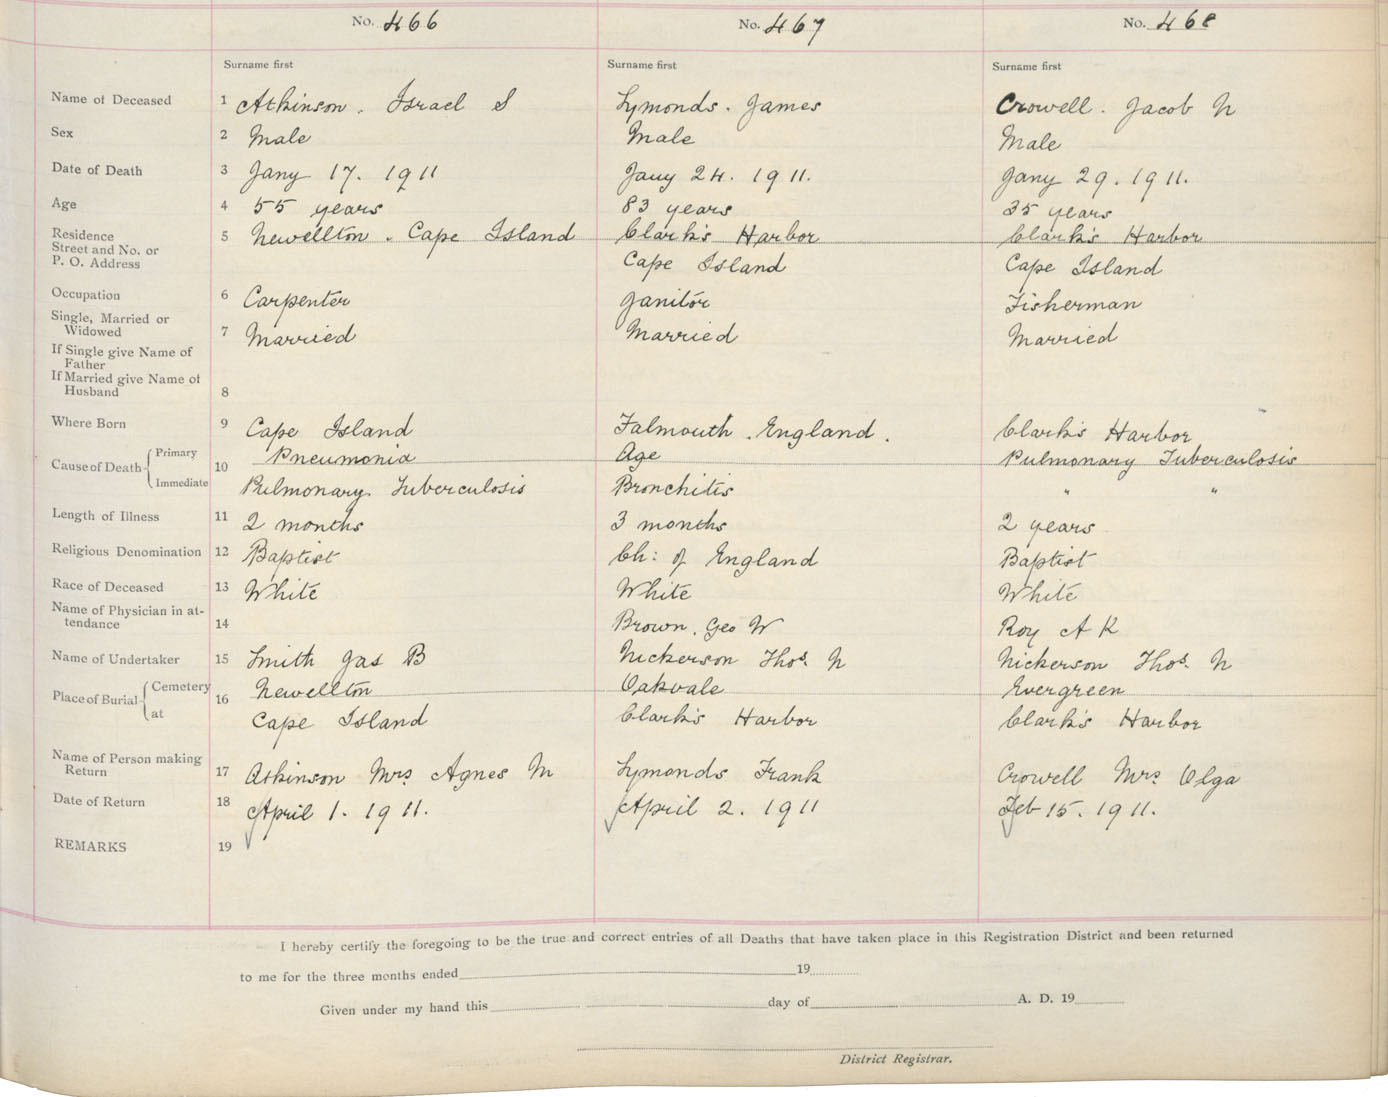 No. 466 No. 467 No. 468
Surname first Surname first Surname first
Name of Deceased 1 Atkinson. Israel S Symonds. James Crowell. Jacob N
Sex 2 Male Male Male
Date of Death 3 Jany 17. 1911 Jany 24. 1911. Jany 29. 1911.
Age 4 55 years 83 years 35 years
Residence 5 Newellton. Cape Island Clark's Harbor Clark's Harbor
Street and No. or
P. O. Address Cape Island Cape Island
Occupation 6 Carpenter Janitor Fisherman
Single, Married or
Widowed 7 Married Married Married
If Single give Name of
Father
If Married give Name of
Husband 8
Where Born 9 Cape Island Falmouth. England. Clark's Harbor
Cause of Death Primary 10 Pneumonia Age Pulmonary Tuberculosis
Immediate Pulmonary Tuberculosis Bronchitis " "
Length of Illness 11 2 months 3 months 2 years
Religious Denomination 12 Baptist Ch: of England Baptist
Race of Deceased 13 White White White
Name of Physician in at-
tendance 14 Brown. Geo W Roy A K
Name of Undertaker 15 Smith Jas B Nickerson Thos. N Nickerson Thos. N
Place of Burial Cemetery 16 Newellton Oakvale Evergreen
at Cape Island Clark's Harbor Clark's Harbor
Name of Person making
Return 17 Atkinson Mrs Agnes M Symonds Frank Crowell Mrs Olga
Date of Return 18 April 1. 1911. April 2. 1911 Feb 15. 1911.
REMARKS 19
I hereby certify the foregoing to be the true and correct entries of all Deaths that have taken place in this Registration District and been returned
to me for the three months ended 19
Given under my hand this day of A. D. 19
District Registrar.